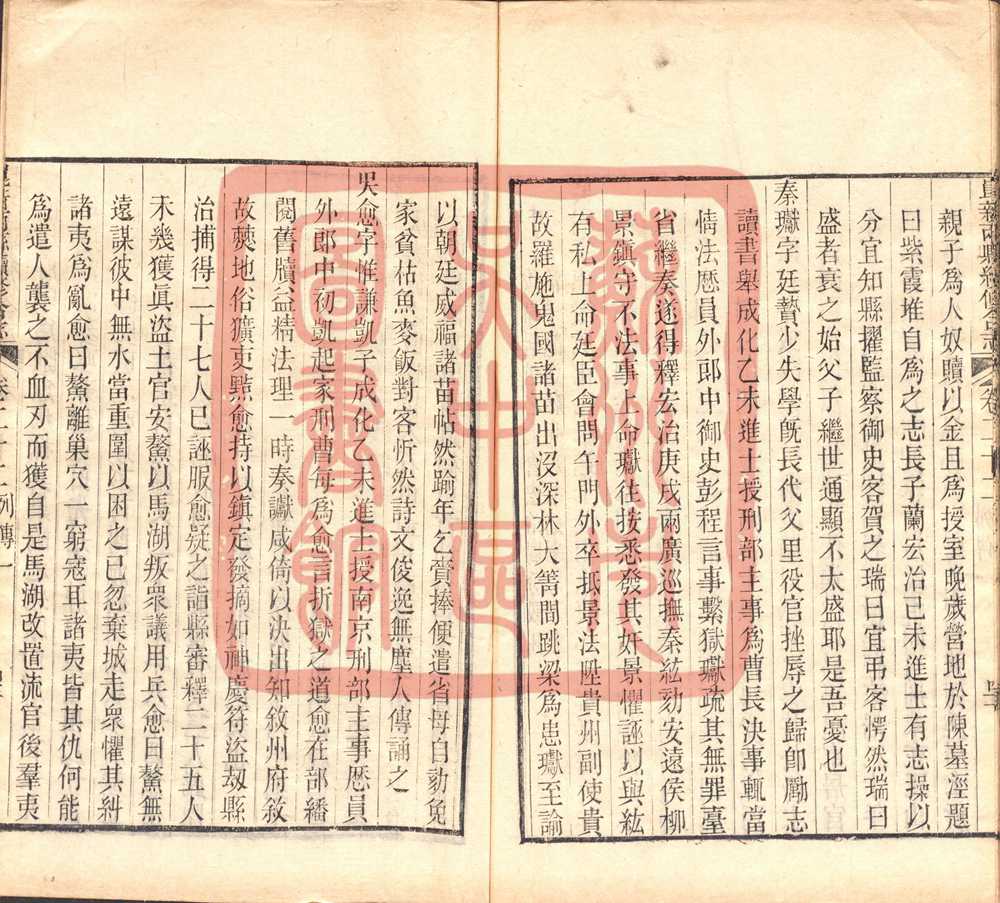 親子為人奴贖以金且為授室晚歲營地於陳墓涇題
曰紫霞堆自為之志長子蘭宏治己未進士有志操以
分宜知縣擢監察御史客賀之瑞曰宜弔客愕然瑞曰
盛者衰之始父子繼世通顯不太盛耶是吾憂也
秦瓛字廷贄少失學旣長代父里役官挫辱之歸卽勵志
讀書舉成化乙未進士授刑部主事為曹長決事輒當
情法歷員外郎中御史彭程言事繫獄瓛疏其無罪臺
省繼奏遂得釋宏治庚戌兩廣巡撫秦紘劾安遠侯柳
景鎮守不法事上命瓛往按悉發其奸景懼誣以與紘
有私上命廷臣會問午門外卒抵景法陞貴州副使貴
故羅施鬼國諸苗出沒深林大箐間跳梁為患瓛至諭
以朝廷威福諸苗帖然踰年乞賚捧便遣省母自劾免
家貧枯魚麥飯對客忻然詩文俊逸無塵人傳誦之
吳愈字惟謙凱子成化乙未進士授南京刑部主事歷員
外郎中初凱起家刑曹每為愈言折獄之道愈在部繙
閱舊牘益精法理一時奏讞咸倚以決出知敘州府敘
故僰地俗獷吏黠愈持以鎮定發摘如神慶符盜刼縣
治捕得二十七人已誣服愈疑之詣縣審釋二十五人
未幾獲眞盜土官安鰲以馬湖叛衆議用兵愈曰鰲無
遠謀彼中無水當重圍以困之已忽棄城走衆懼其糾
諸夷為亂愈曰鰲離巢穴一窮寇耳諸夷皆其仇何能
為遣人襲之不血刃而獲自是馬湖改置流官後羣夷
卷二十二 列傳一